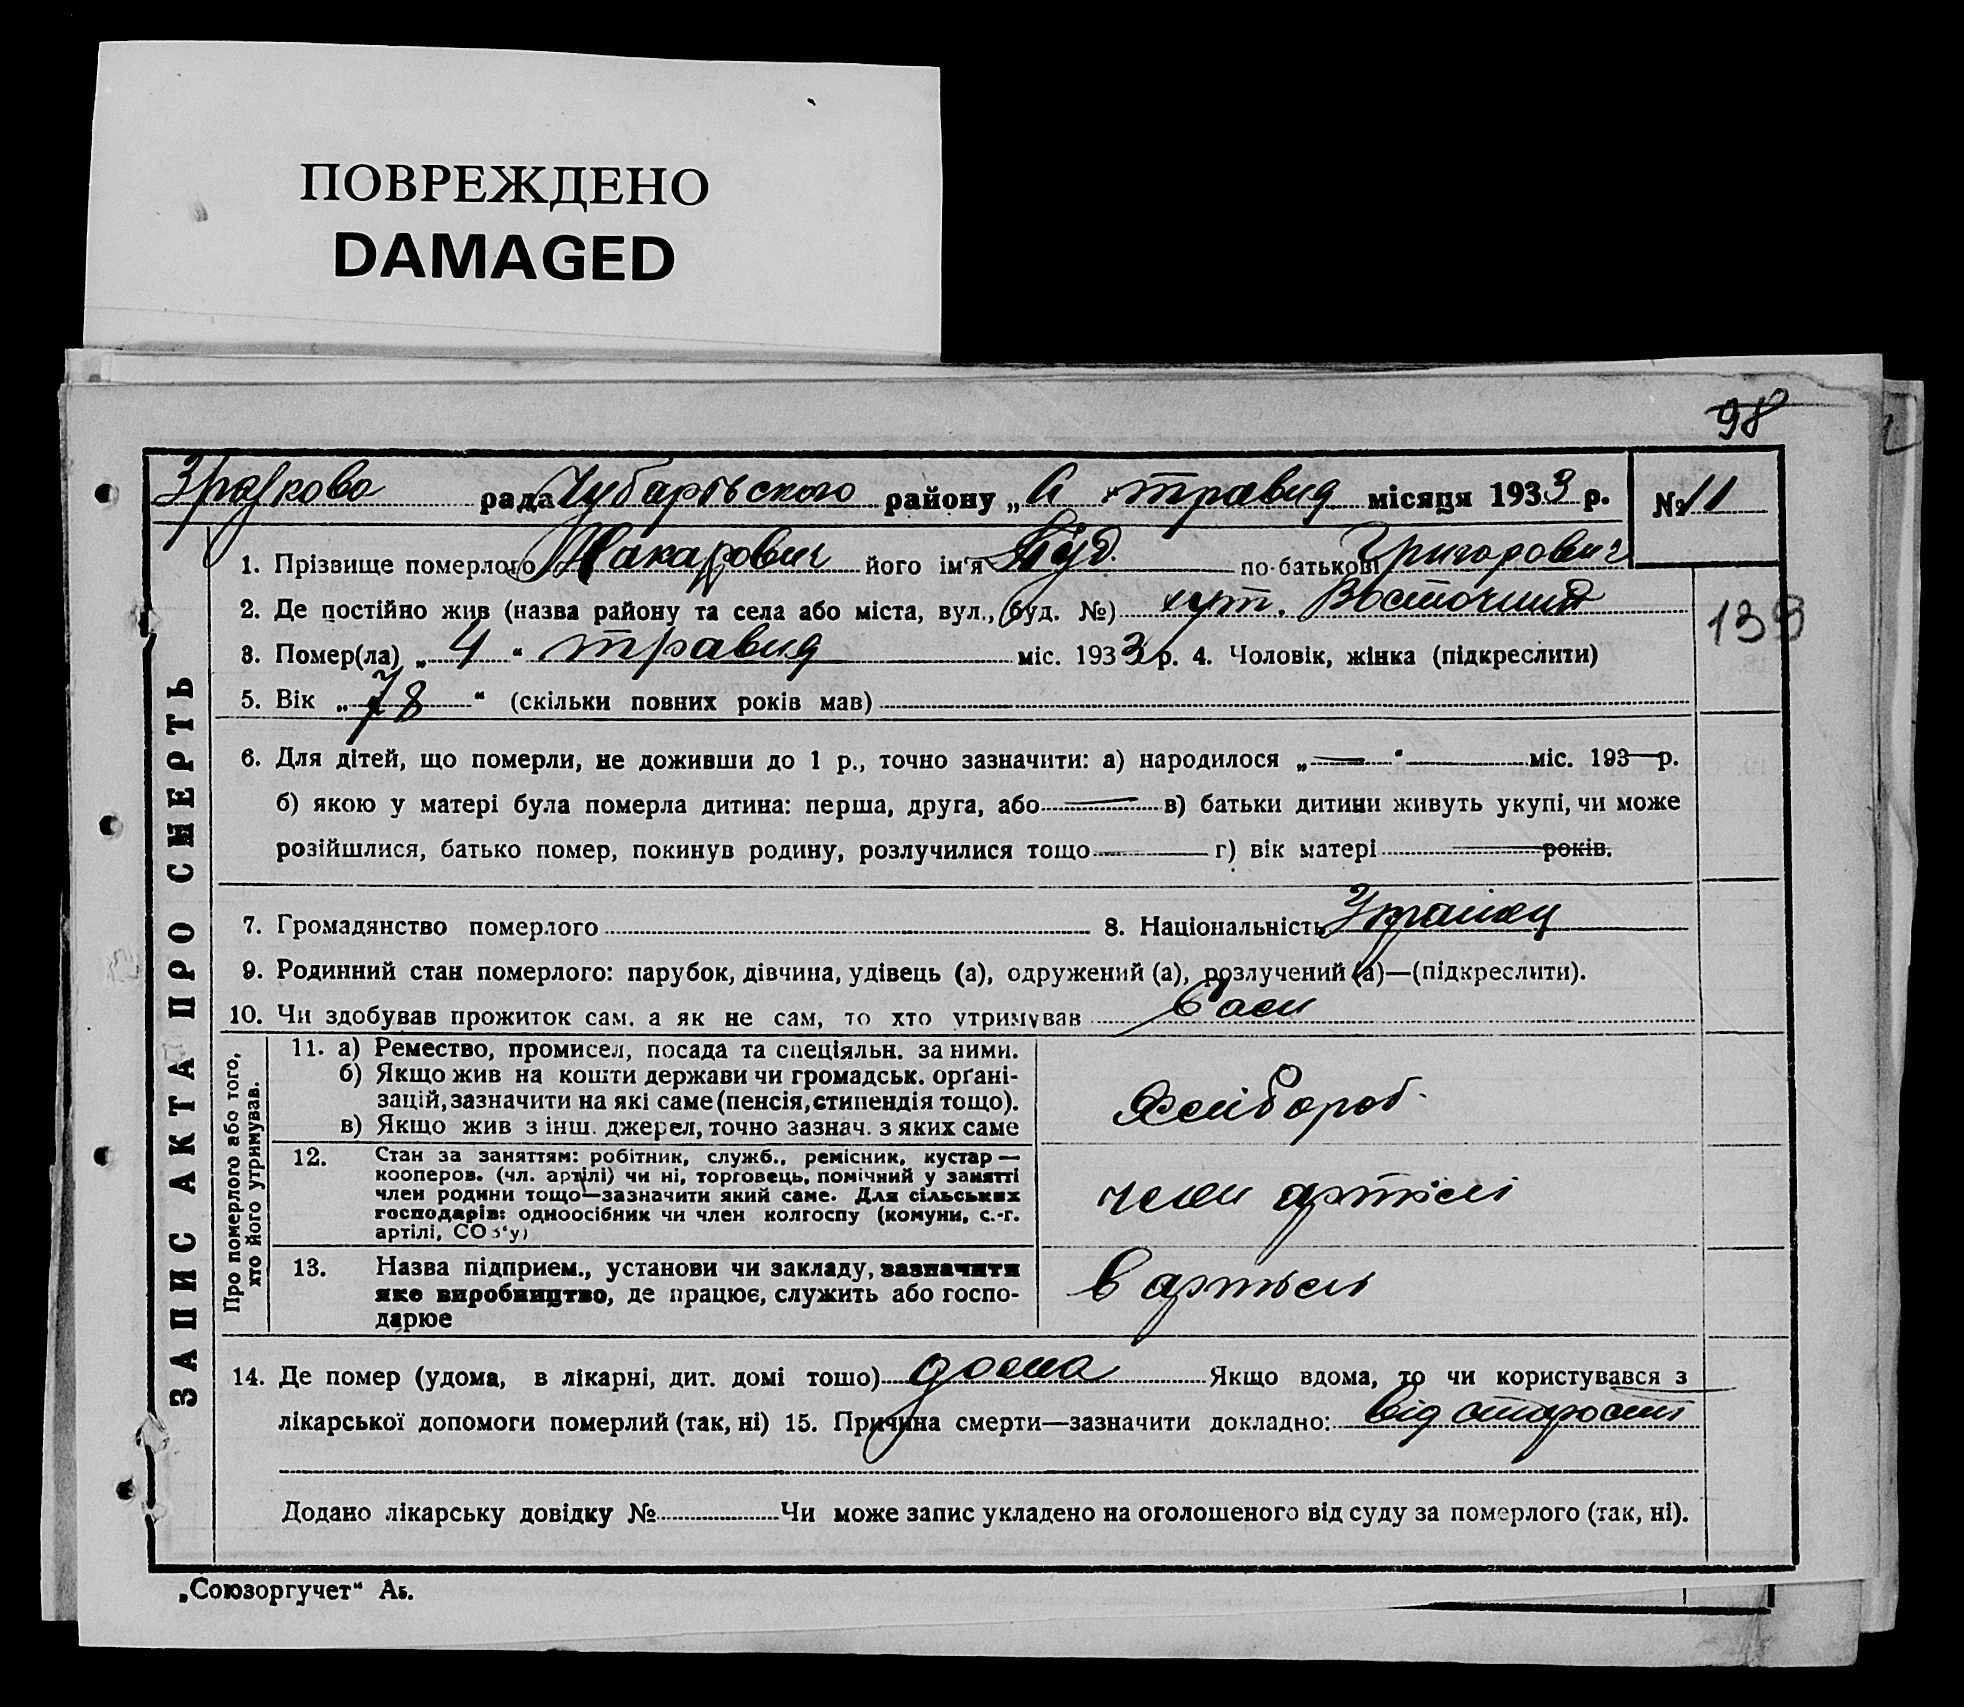 ПОВРЕЖДЕНО
DAMAGED
98
рада Чубарівського району „ " травня місяця 1933 р. № 11
1. Прізвище померлого Макарович його ім'я по-батькові Григорович
139
2. Де постійно жив (назва району та села або міста, вул., буд. №) хут. Восточний
3. Помер(ла) „ 4 " травня міс. 1933 р. 4. Чоловік, жінка (підкреслити)
5. Вік „ 78 " (скільки повних років мав)
6. Для дітей, що померли, не доживши до 1 р., точно зазначити: а) народилося „ — " — міс. 193 — р.
б) якою у матері була померла дитина: перша, друга, або — в) батьки дитини живуть укупі, чи може
розійшлися, батько помер, покинув родину, розлучилися тощо — г) вік матері — років.
7. Громадянство померлого 8. Національність Українец
9. Родинний стан померлого: парубок, дівчина, удівець (а), одружений (а), розлучений (а)—(підкреслити).
10. Чи здобував прожиток сам, а як не сам, то хто утримував сам
ЗАПИС АКТА ПРО СМЕРТЬ
Про померлого або того,
хто його утримував.
11. а) Ремество, промисел, посада та спеціяльн. за ними.
б) Якщо жив на кошти держави чи громадськ. орґані-
зацій, зазначити на які саме (пенсія, стипендія тощо).
в) Якщо жив з інш. джерел, точно зазнач. з яких саме
Хлібороб.
12. Стан за заняттям: робітник, служб., ремісник, кустар —
кооперов. (чл. артілі) чи ні, торговець, помічний у занятті
член родини тощо—зазначити який саме. Для сільських
господарів: одноосібник чи член колгоспу (комуни, с.-г.
артілі, СОЗ'у)
член артілі
13. Назва підприєм., установи чи закладу, зазначити
яке виробництво, де працює, служить або госпо-
дарює
в артели
14. Де помер (удома, в лікарні, дит. домі тощо) дома Якщо вдома, то чи користувався з
лікарської допомоги померлий (так, ні) 15. Причина смерти—зазначити докладно: від старости
Додано лікарську довідку № Чи може запис укладено на оголошеного від суду за померлого (так, ні).
„Союзоргучет" А5.